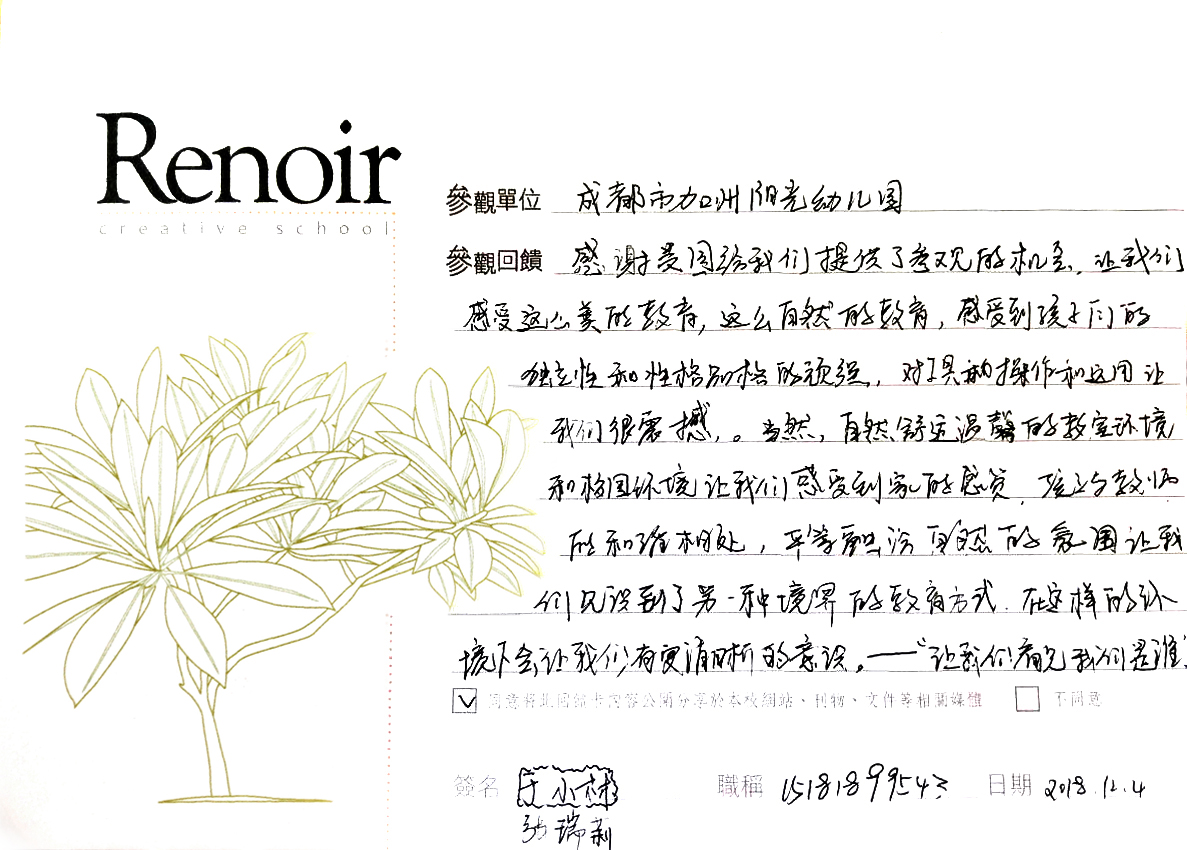 Renoir
creative school
參觀單位 成都市加州阳光幼儿园
參觀回饋 感谢贵园给我们提供了参观的机会,让我们
感受这么美的教育,这么自然的教育,感受到孩子们的
独立性和性格品格的顽强,对工具的操作和运用让
我们很震撼,。当然,自然舒适温馨的教室环境
和校园环境让我们感受到家的感觉,孩子与教师
的和谐相处,平等融洽自然的氛围让我
们见识到了另一种境界的教育方式.在这样的环
境下会让我们有更清晰的意识。——“让我们看见我们是谁.
同意將此回饋卡內容公開分享於本校網站、刊物、文件等相關媒體 不同意
簽名 于小林 職稱 15181899543 日期 2018.12.4
张瑞莉